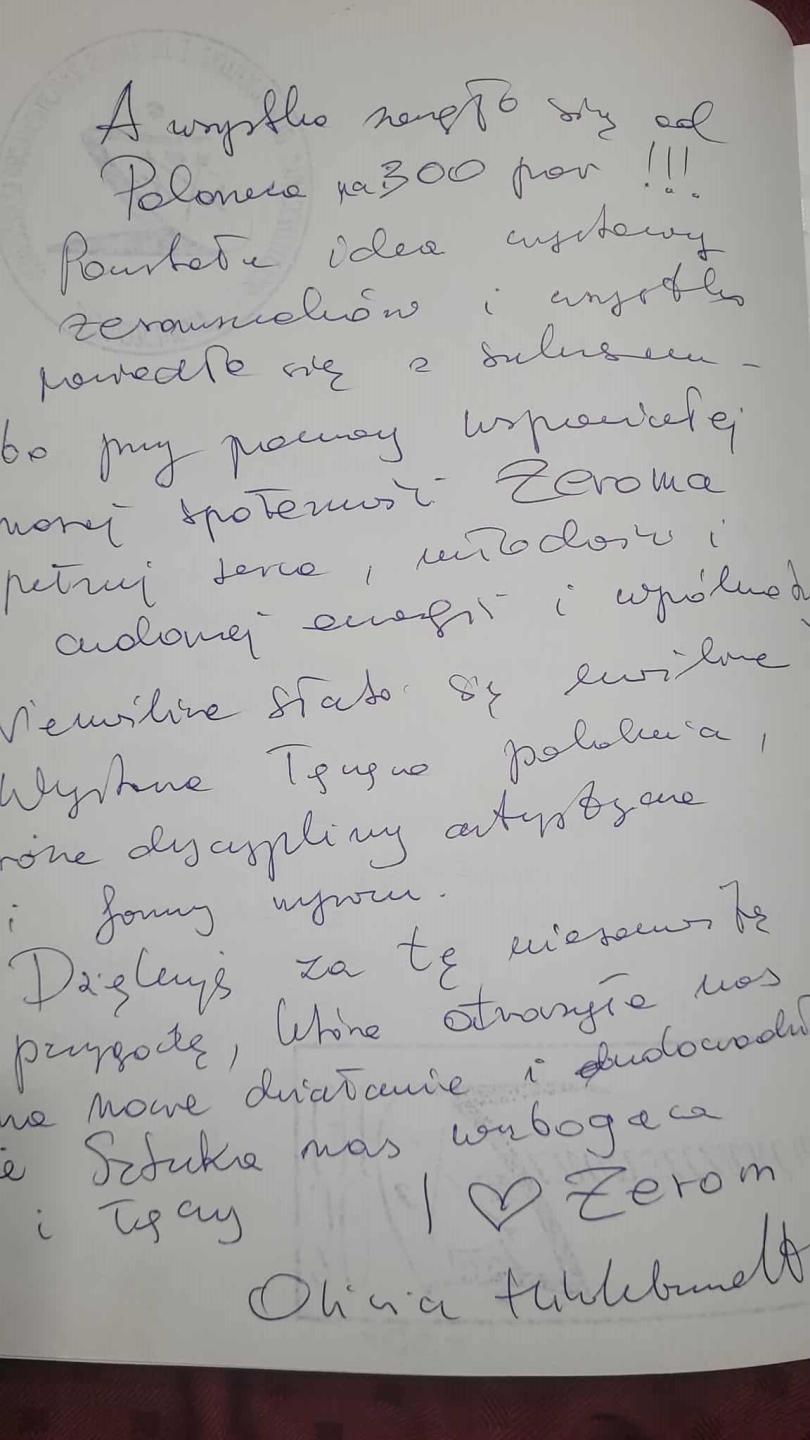 A wszystko zaczęło się od
Poloneza na 300 par !!!
Powstała idea wystawy
żeromszczaków i wszystko
powiodło się z sukcesem -
bo przy pomocy wspaniałej
naszej społeczności Żeroma
pełnej serca, młodości i
cudownej energii i wspólnoty
Niemożliwe stało się możliwe
Wystawa łącząca pokolenia,
różne dyscypliny artystyczne
i formy wyrazu.
Dziękuję za tę niesamowitą
przygodę, która otworzyła nas
na nowe działanie i udowodni
że Sztuka nas wzbogaca
i łączy I ♡ Żerom
Olivia Hildebrandt